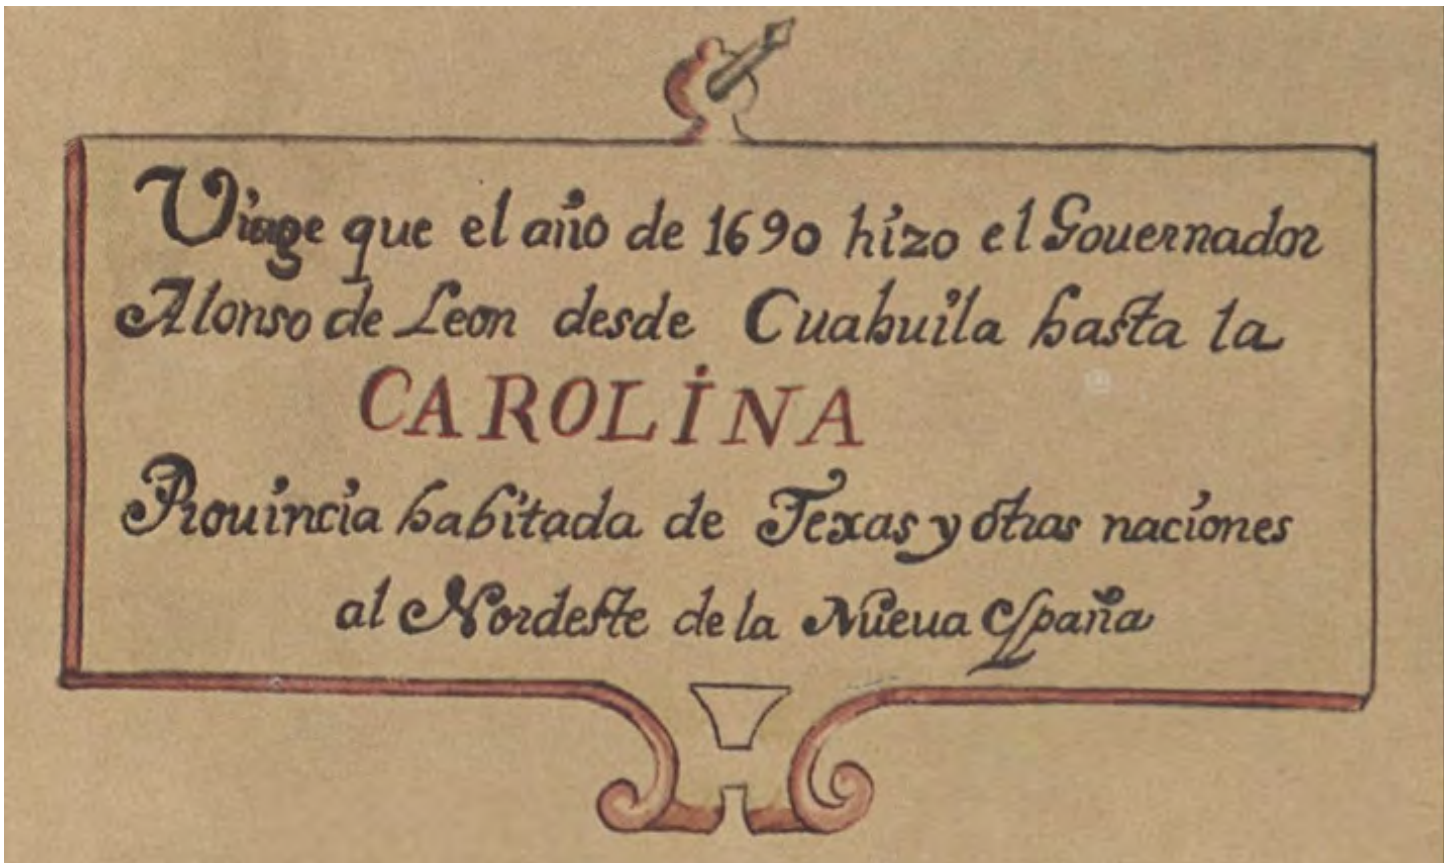 Viage que el año de 1690 hizo el Gouernador
Alonso de Leon desde Cuahuila hasta la
CAROLINA
Prouincia habitada de Texas y otras naciones
al Nordeste de la Nueua España